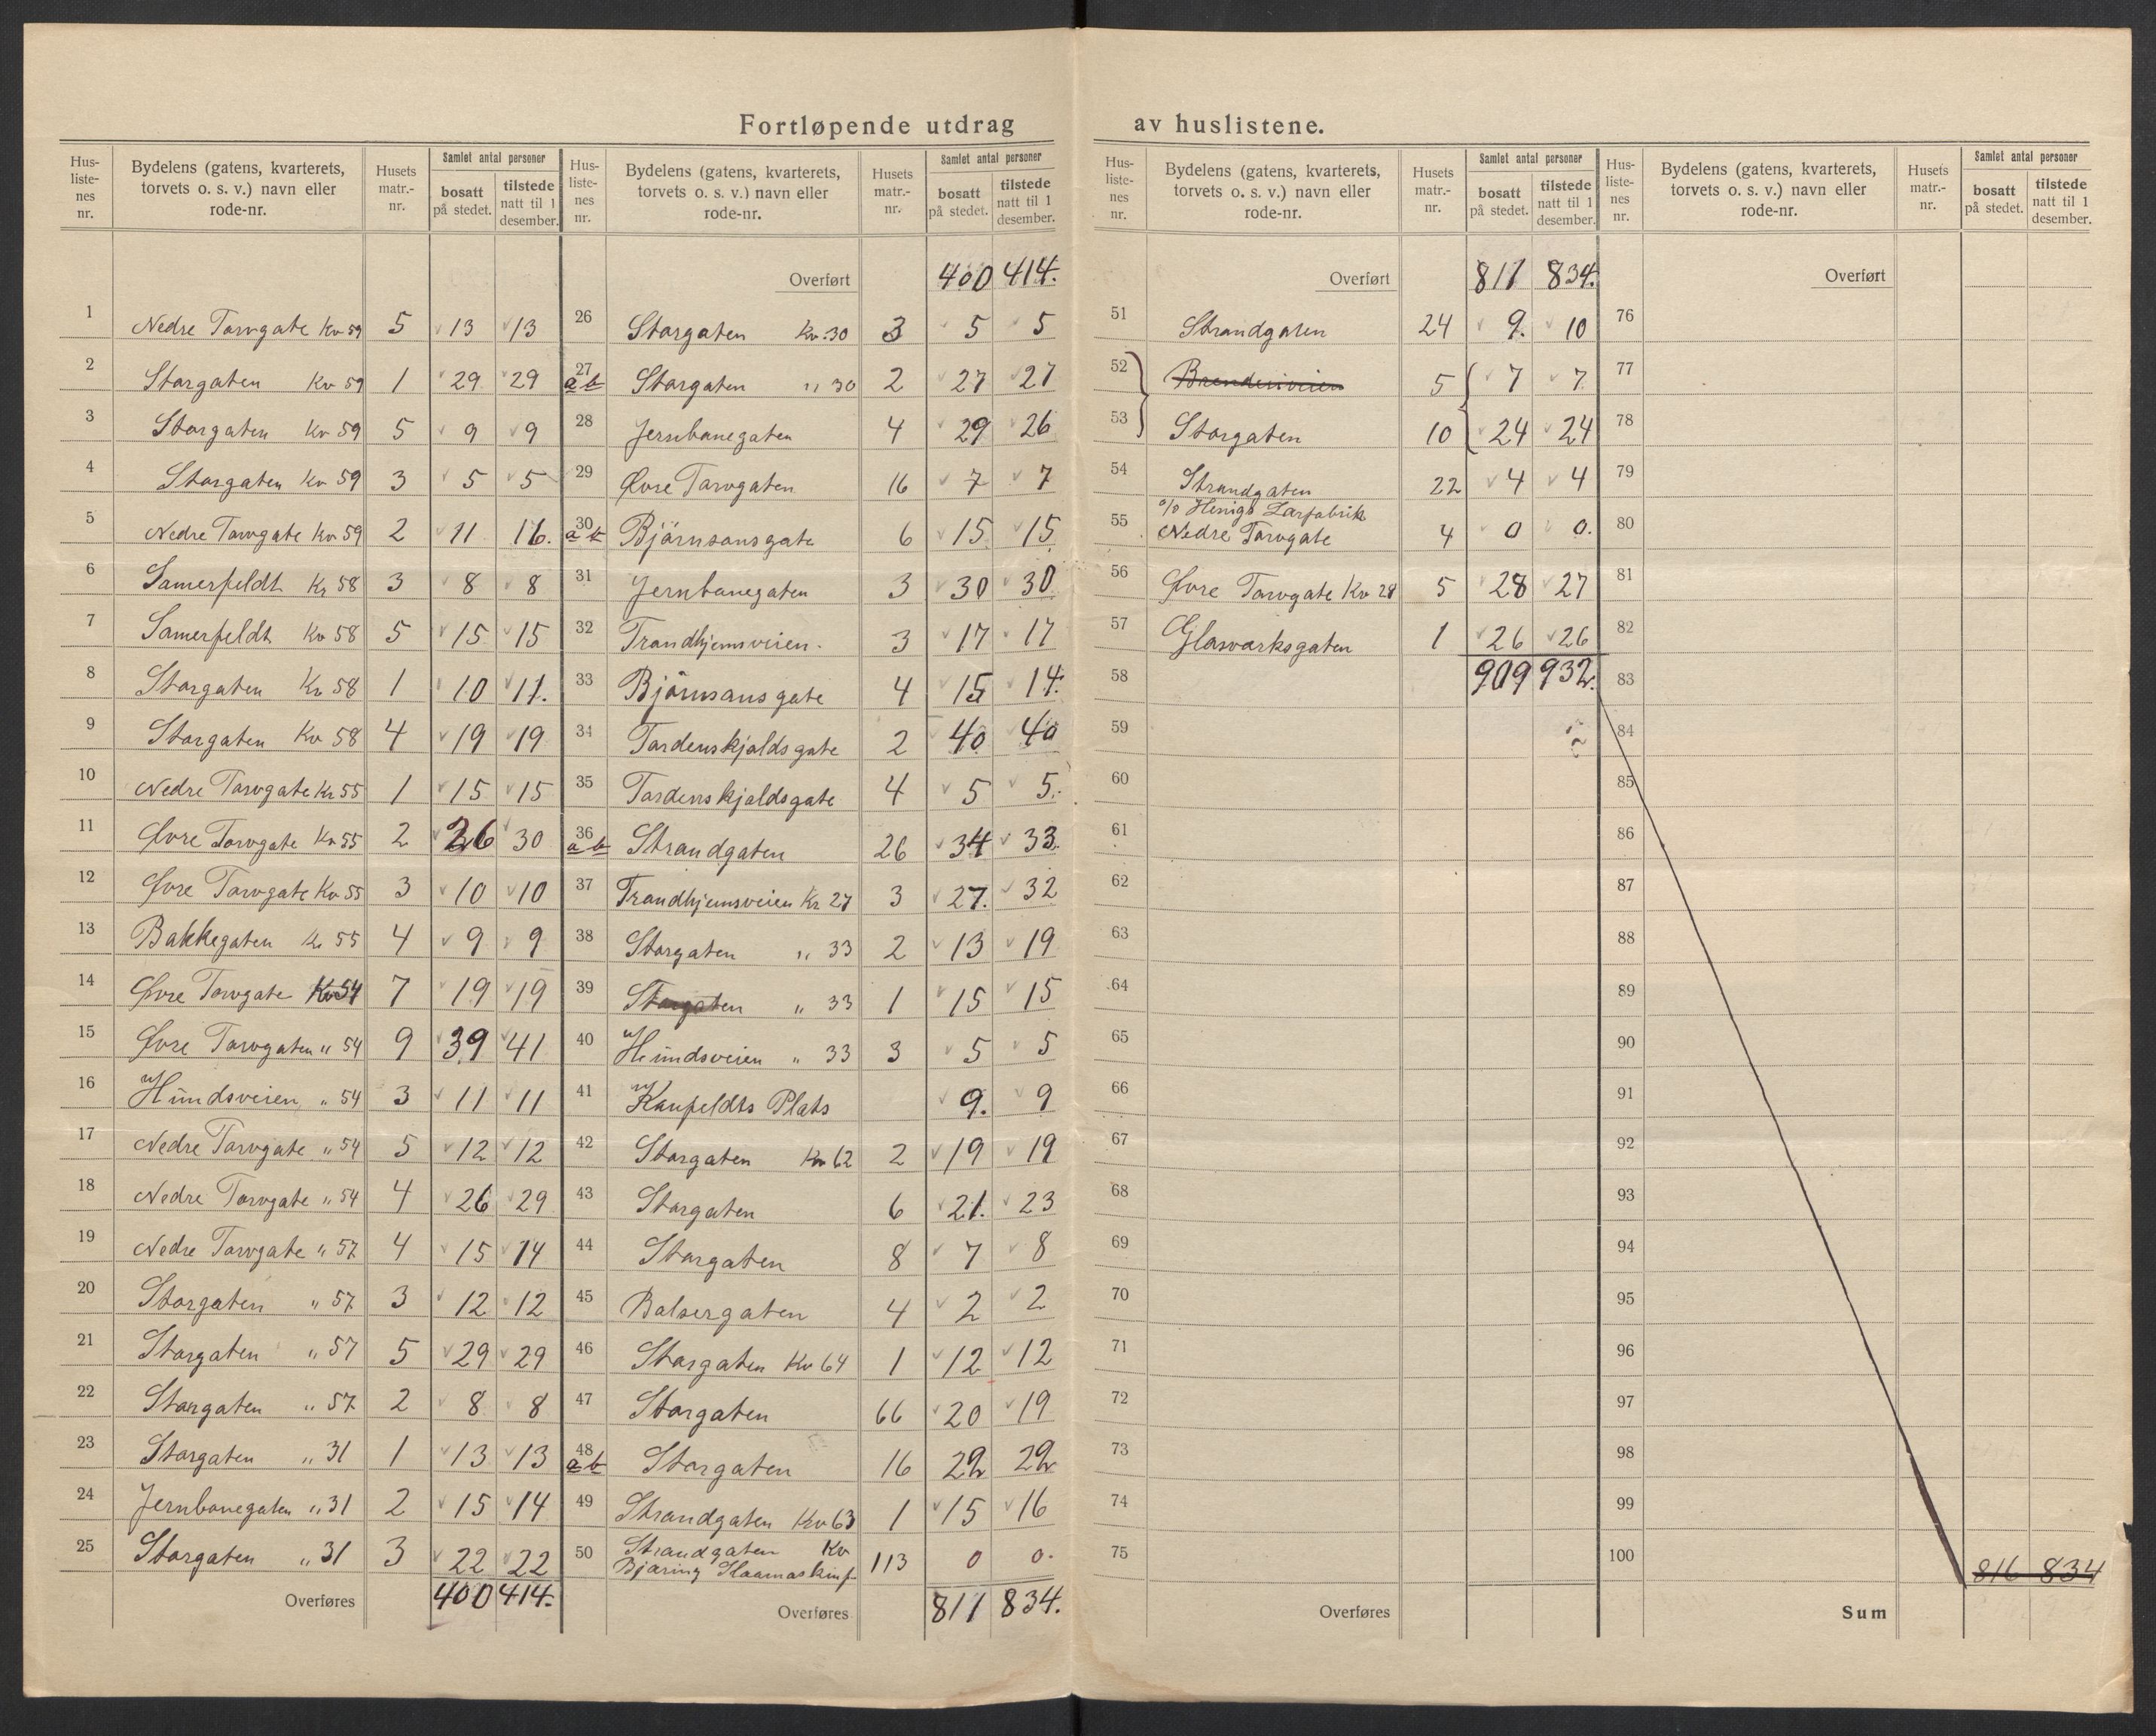 Fortløpende utdrag av huslistene.
Hus-liste-nes nr. Bydelens (gatens, kvarterets, torvets o. s. v.) navn eller rode-nr. Husets matr.-nr. Samlet antal personer bosatt på stedet. tilstede natt til 1 desember.
1 Nedre Torvgate Kv 59 5 13 13
2 Storgaten Kv 59 1 29 29
3 Storgaten Kv 59 5 9 9
4 Storgaten Kv 59 3 5 5
5 Nedre Torvgate Kv 59 2 11 16.
6 Somerfeldt Kv 58 3 8 8
7 Somerfeldt Kv 58 5 15 15
8 Storgaten Kv 58 1 10 11.
9 Storgaten Kv 58 4 19 19
10 Nedre Torvgate Kv 55 1 15 15
11 Øvre Torvgate Kv 55 2 26 30
12 Øvre Torvgate Kv 55 3 10 10
13 Bakkegaten Kv 55 4 9 9
14 Øvre Torvgate Kv 54 7 19 19
15 Øvre Torvgaten " 54 9 39 41
16 Hundsveien " 54 3 11 11
17 Nedre Torvgate " 54 5 12 12
18 Nedre Torvgate " 54 4 26 29
19 Nedre Torvgate " 57 4 15 14
20 Storgaten " 57 3 12 12
21 Storgaten " 57 5 29 29
22 Storgaten " 57 2 8 8
23 Storgaten " 31 1 13 13
24 Jernbanegaten " 31 2 15 14
25 Storgaten " 31 3 22 22
Overføres 400 414.
Hus-liste-nes nr. Bydelens (gatens, kvarterets, torvets o. s. v.) navn eller rode-nr. Husets matr.-nr. Samlet antal personer bosatt på stedet. tilstede natt til 1 desember.
Overført 400 414.
26 Storgaten Kv. 30 3 5 5
27 a b Storgaten " 30 2 27 27
28 Jernbanegaten 4 29 26
29 Øvre Torvgaten 16 7 7
30 a b Bjørnsonsgate 6 15 15
31 Jernbanegaten 3 30 30
32 Trondhjemsveien. 3 17 17
33 Bjørnsonsgate 4 15 14.
34 Tordenskjoldsgate 2 40 40
35 Tordenskjoldsgate 4 5 5.
36 a b Strandgaten 26 34 33.
37 Trondhjemsveien Kv 27 3 27. 32
38 Storgaten " 33 2 13 19
39 Storgaten " 33 1 15 15
40 Hundsveien " 33 3 5 5
41 Kaufeldts Plats 9. 9
42 Storgaten Kv 62 2 19 19
43 Storgaten 6 21. 23
44 Storgaten 8 7 8
45 Balsergaten 4 2 2
46 Storgaten Kv 64 1 12 12
47 Storgaten 66 20 19
48 a b Storgaten 16 22 22
49 Strandgaten Kv 63 1 15 16
50 Strandgaten Kv
113 0 0.
Overføres 811 834.
Hus-liste-nes nr. Bydelens (gatens, kvarterets, torvets o. s. v.) navn eller rode-nr. Husets matr.-nr. Samlet antal personer bosatt på stedet. tilstede natt til 1 desember.
Overført 811 834.
51 Strandgaten 24 9. 10
52 5 7 7.
53 Storgaten 10 24 24
54 Strandgaten 22 4 4
55 Nedre Torvgate 4 0 0.
56 Øvre Torvgate Kv 28 5 28 27
57 Glasværksgaten 1 26 26
58 909 932.
59
60
61
62
63
64
65
66
67
68
69
70
71
72
73
74
75
Overføres
Hus-liste-nes nr. Bydelens (gatens, kvarterets, torvets o. s. v.) navn eller rode-nr. Husets matr.-nr. Samlet antal personer bosatt på stedet. tilstede natt til 1 desember.
Overført
76
77
78
79
80
81
82
83
84
85
86
87
88
89
90
91
92
93
94
95
96
97
98
99
100 816 834
Sum